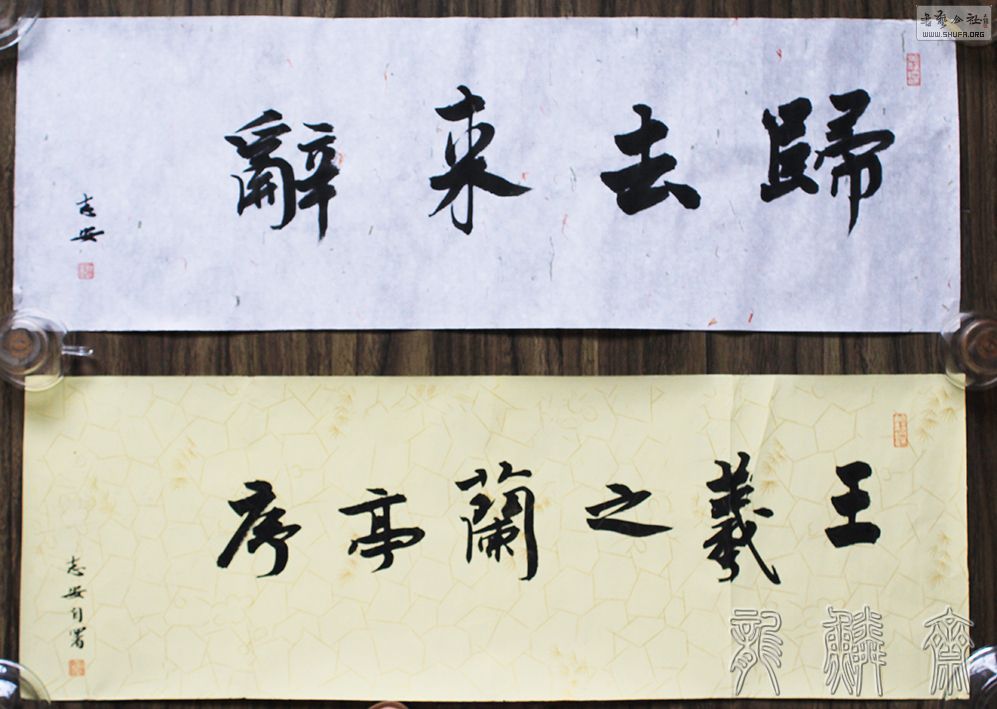 書藝公社
WWW.SHUFA.ORG
歸去來辭
志安
王羲之蘭亭序
志安自署
龍麟齋